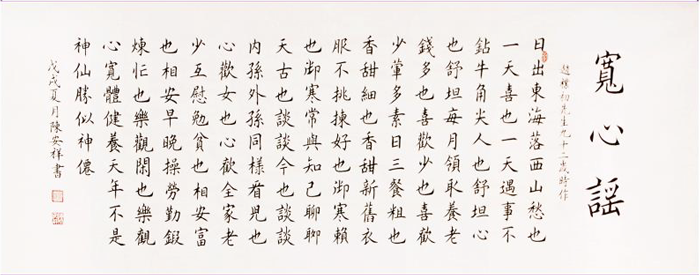 寬心謠
趙樸初先生九十二歲時作
日出東海落西山愁也
一天喜也一天遇事不
鉆牛角尖人也舒坦心
也舒坦每月領取養老
錢多也喜歡少也喜歡
少葷多素日三餐粗也
香甜細也香甜新舊衣
服不挑揀好也御寒賴
也御寒常與知己聊聊
天古也談談今也談談
內孫外孫同樣看兒也
心歡女也心歡全家老
少互慰勉貧也相安富
也相安早晚操勞勤鍛
煉忙也樂觀閑也樂觀
心寬體健養天年不是
神仙勝似神僊
戊戌夏月陳安祥書